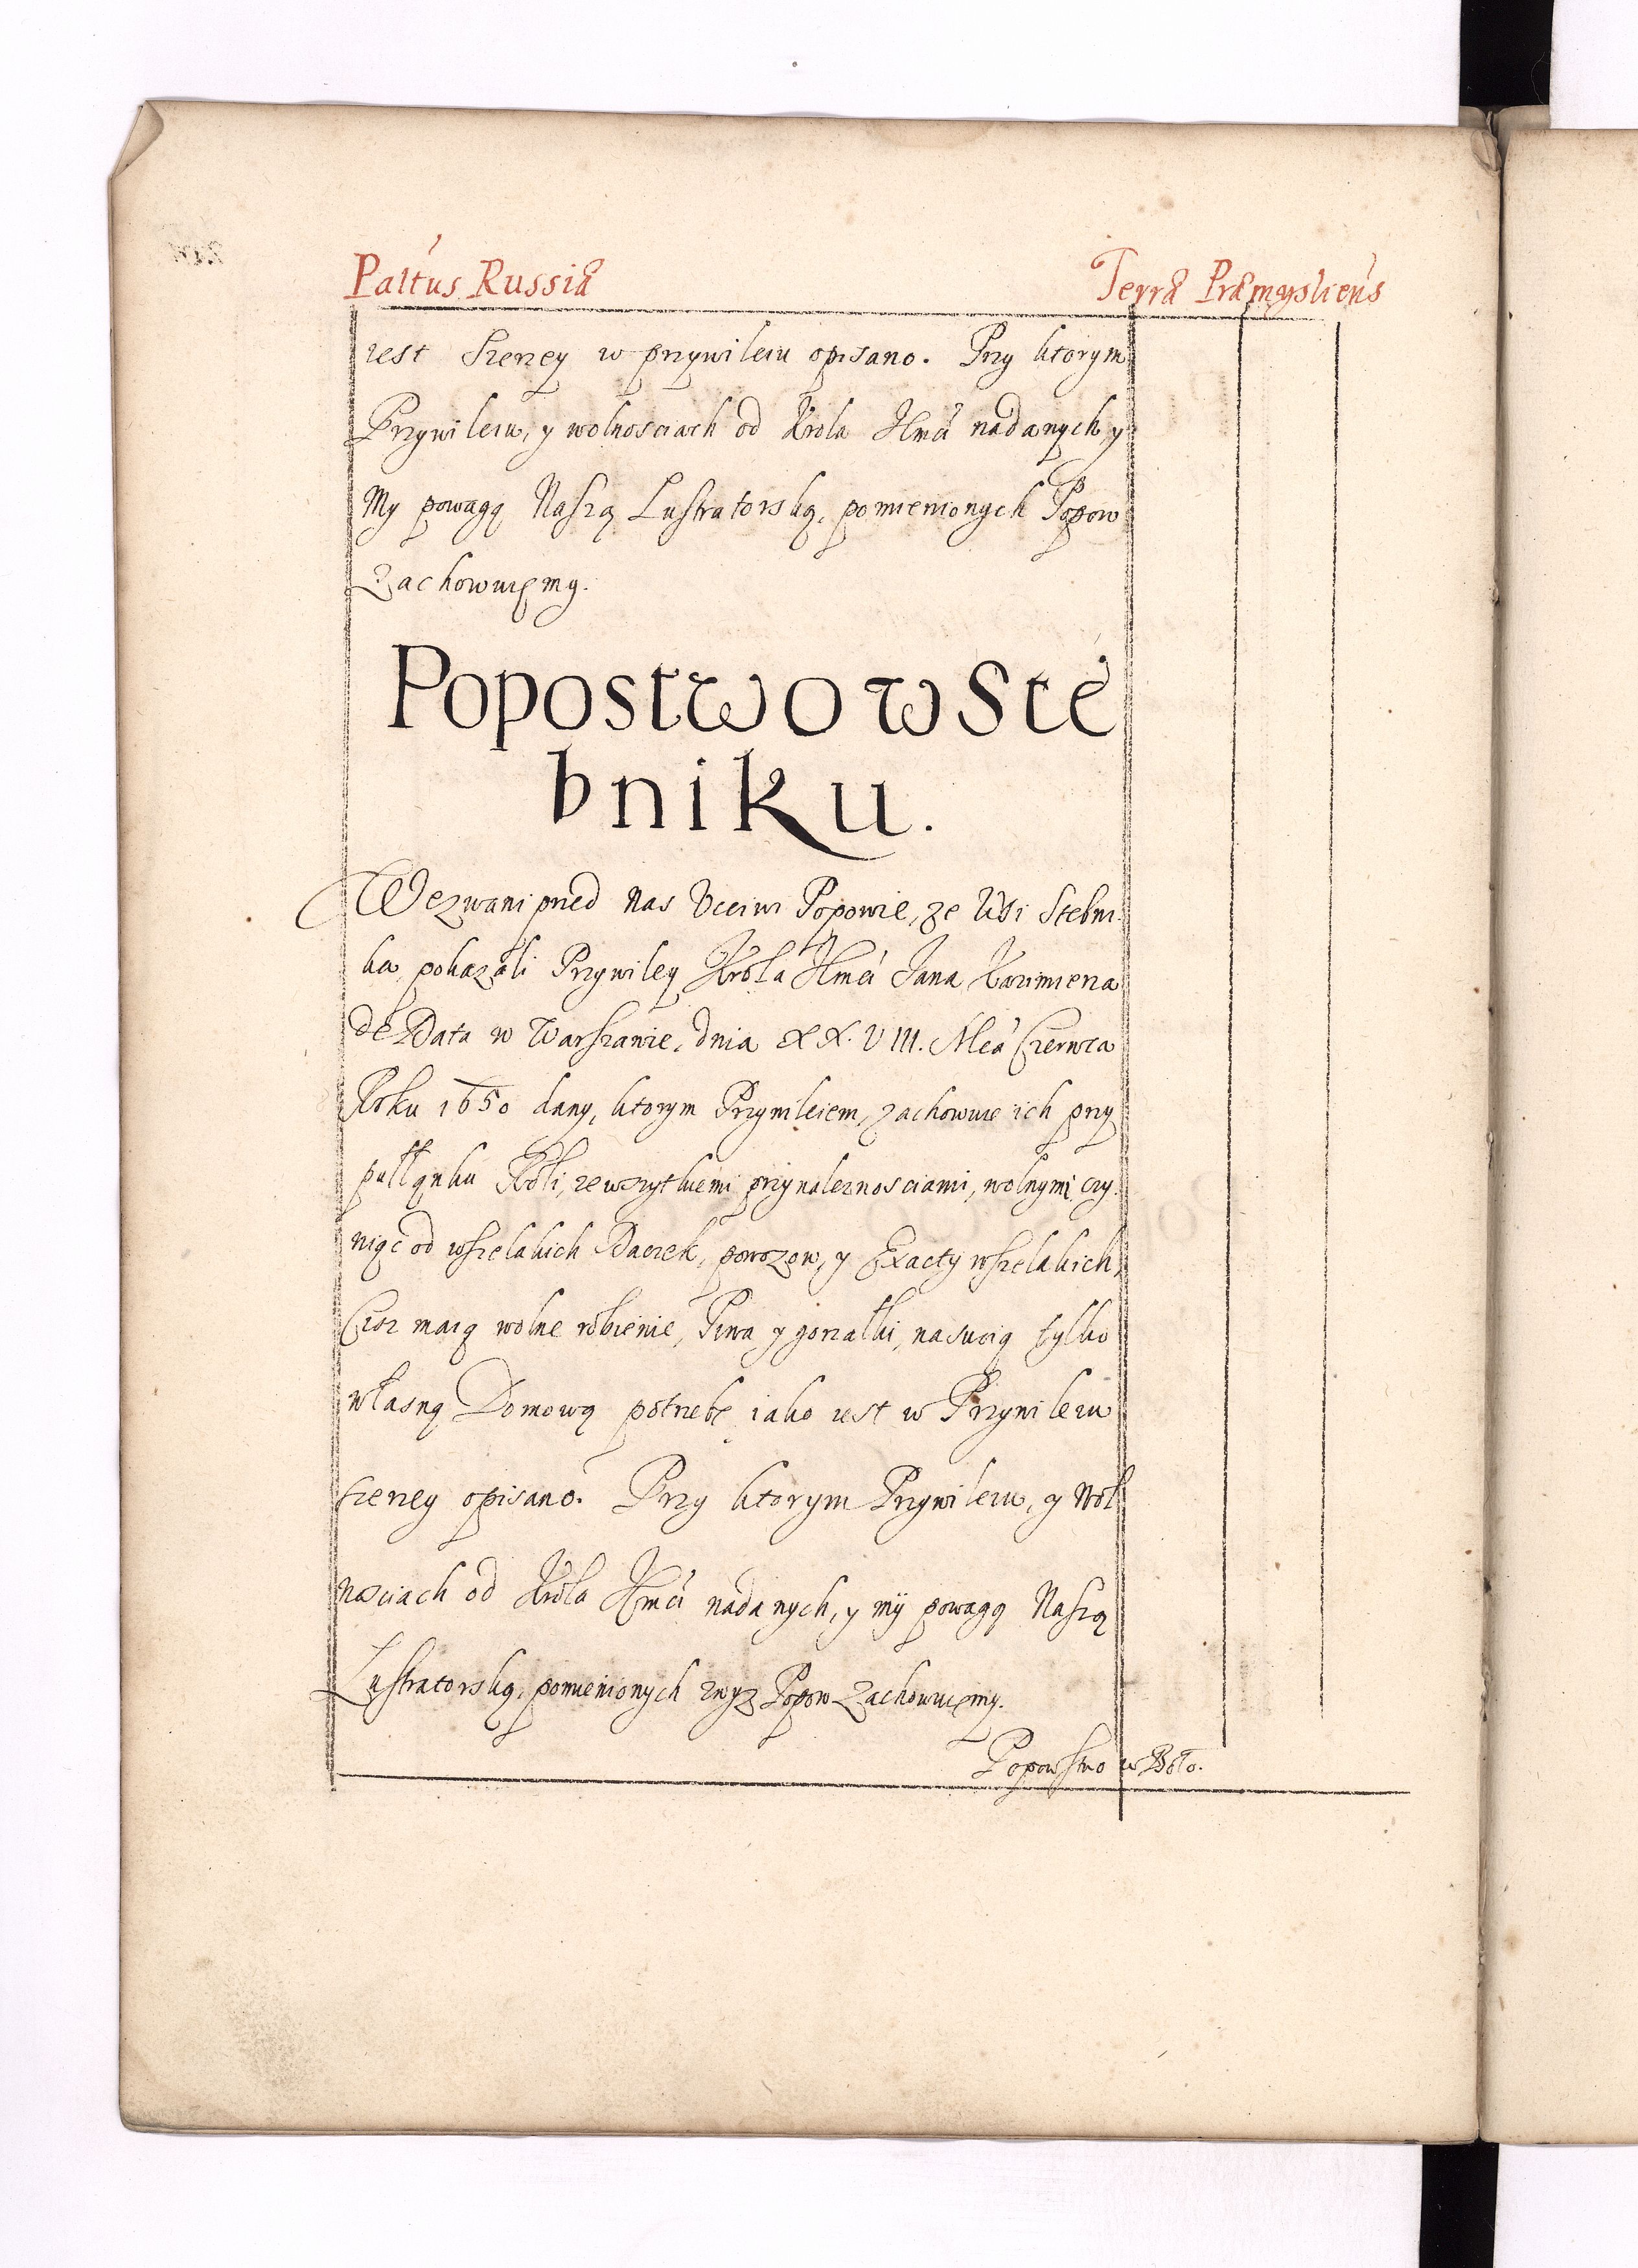 Paltus Russiæ Terræ Præmysliens
iest szerzey w przywileiu opisano. Przy ktorym
Przywileiu, y wolnosciach od Krola Jmci nadanych, y
My powagą Naszą Lustratorską, pomienionych Popow
Zachowuięmy.
Popostwo w Ste
bniku.
Wezwani przed Nas Ucciwi Popowie, ze Wsi Stebni
ka, pokazali Przywiley Krola Jmci Jana Kazimierza
de Data w Warszawie, dnia XX. VIII. Mca Czerwca
Roku 1650 dany, ktorym Przywileiem, zachowuie ich przy
pułłąnku Roli, ze wszytkiemi przynaleznosciami, wolnymi czy
niąc od wszelakich Daczek, powozow, y Exacty wszelakich,
Ciż maią wolne robienie, Piwa y gorzałki, na swoią tylko
własną Domową potrzebę, iako iest w Przywileiu
szerzey opisano. Przy ktorym Przywileiu, y Wol
nosciach od Krola Jmci nadanych, y my powagą Naszą
Lustratorską, pomienionych zwyz Popow Zachowuięmy.
Popowstwo w Boło.